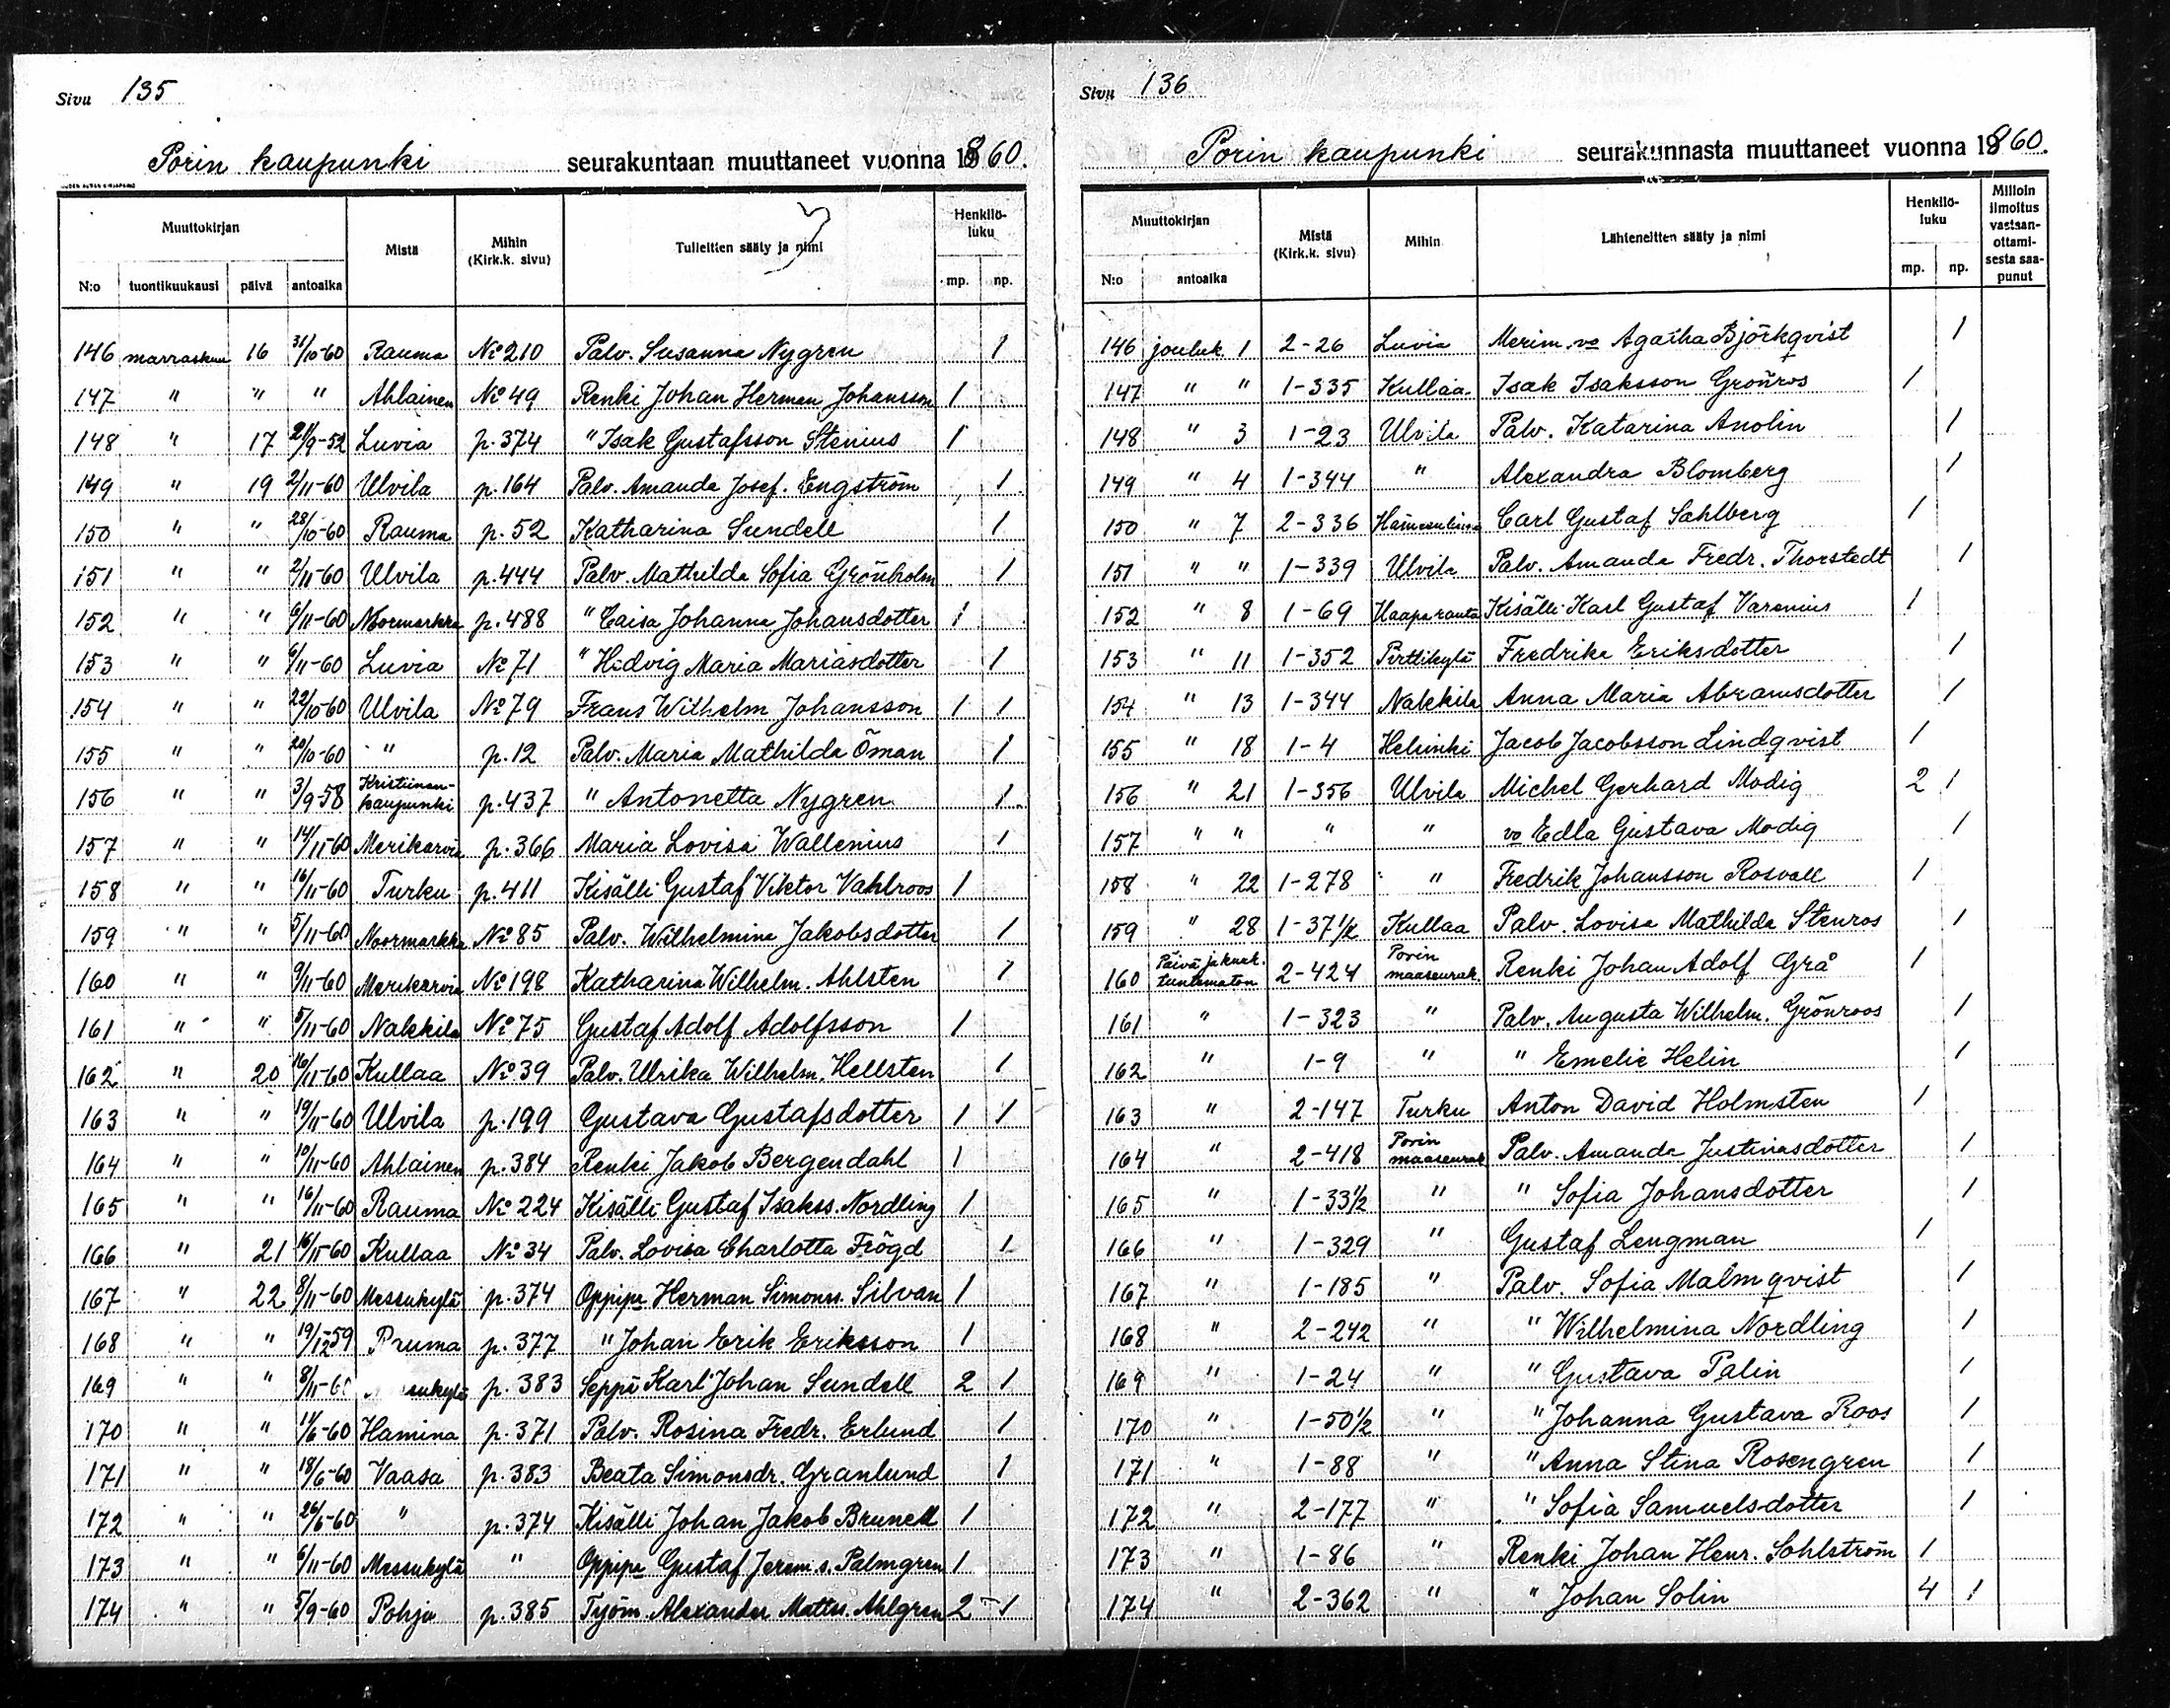 Sivu 135
Porin kaupunki seurakuntaan muuttaneet vuonna 1860.
Muuttokirjan Mistä Mihin (Kirk.k. sivu) Tulleitten sääty ja nimi Henkilöluku
N:o tuontikuukausi päivä antoaika mp. np.
146 marraskuu 16 31/10-60 Rauma No 210 Palv. Susanna Nygren 1
147 " " " Ahlainen No 49 Renki Johan Herman Johansson 1
148 " 17 21/9-52 Luvia p.374 " Isak Gustafsson Stenius 1
149 " 19 2/11-60 Ulvila p.164 Palv. Amanda Josef. Engström 1
150 " " 28/10-60 Rauma p.52 Katharina Sundell 1
151 " " 2/11-60 Ulvila p.444 Palv. Mathilda Sofia Grönholm 1
152 " " 6/11-60 Noormarkku p.488 " Caisa Johanna Johansdotter 1
153 " " 6/11-60 Luvia No 71 " Hedvig Maria Mariasdotter 1
154 " " 22/10-60 Ulvila No 79 Frans Wilhelm Johansson 1 1
155 " " 20/10-60 " p.12 Palv. Maria Mathilda Öman 1
156 " " 3/9-58 Kristiinankaupunki p.437 " Antonetta Nygren 1
157 " " 14/11-60 Merikarvia p.366 Maria Lovisa Wallenius 1
158 " " 16/11-60 Turku p.411 Kisälli Gustaf Viktor Vahlroos 1
159 " " 5/11-60 Noormarkku No 85 Palv. Wilhelmina Jakobsdotter 1
160 " " 9/11-60 Merikarvia No 198 Katharina Wilhelm. Ahlsten 1
161 " " 5/11-60 Nakkila No 75 Gustaf Adolf Adolfsson 1
162 " 20 16/11-60 Kullaa No 39 Palv. Ulrika Wilhelm. Hellsten 1
163 " " 19/11-60 Ulvila p.199 Gustava Gustafsdotter 1 1
164 " " 10/11-60 Ahlainen p.384 Renki Jakob Bergendahl 1
165 " " 16/11-60 Rauma No 224 Kisälli Gustaf Isakss. Nordling 1
166 " 21 16/11-60 Kullaa No 34 Palv. Lovisa Charlotta Frögd 1
167 " 22 8/11-60 Messukylä p.374 Oppipa Herman Simonss. Silvan 1
168 " " 19/12-59 Rauma p.377 " Johan Erik Eriksson 1
169 " " 8/11-60 p.383 Seppä Karl Johan Sundell 2 1
170 " " 11/6-60 Hamina p.371 Palv. Rosina Fredr. Erlund 1
171 " " 18/6-60 Vaasa p.383 Beata Simonsdr. Granlund 1
172 " " 26/6-60 " p.374 Kisälli Johan Jakob Brunell 1
173 " " 6/11-60 Messukylä " Oppipa Gustaf Jerem.s. Palmgren 1
174 " " 5/9-60 Pohja p.385 Työm. Alexander Matts. Ahlgren 2 - 1
Sivu 136
Porin kaupunki seurakunnasta muuttaneet vuonna 1860.
Muuttokirjan Mistä (Kirk.k. sivu) Mihin Lähteneitten sääty ja nimi Henkilöluku Milloin ilmoitus vastaanottamisesta saapunut
N:o antoaika mp. np.
146 jouluk. 1 2-26 Luvia Merim. vo Agatha Björkqvist 1
147 " " 1-335 Kullaa Isak Isaksson Grönros 1
148 " 3 1-23 Ulvila Palv. Katarina Anolin 1
149 " 4 1-344 " Alexandra Blomberg 1
150 " 7 2-336 Hämeenlinna Carl Gustaf Sahlberg 1
151 " " 1-339 Ulvila Palv. Amanda Fredr. Thorstedt 1
152 " 8 1-69 Haaparanta Kisälli Karl Gustaf Varenius 1
153 " 11 1-352 Pirttikylä Fredrika Eriksdotter 1
154 " 13 1-344 Nakkila Anna Maria Abramsdotter 1
155 " 18 1-4 Helsinki Jacob Jacobsson Lindqvist 1
156 " 21 1-356 Ulvila Michel Gerhard Modig 2 1
157 " " " " vo Edla Gustava Modig 1
158 " 22 1-278 " Fredrik Johansson Rosvall 1
159 " 28 1-37 1/2 Kullaa Palv. Lovisa Mathilda Stenros 1
160 Päivä ja kuuk. tuntematon 2-424 Porin maaseurak. Renki Johan Adolf Grå 1
161 " 1-323 " Palv. Augusta Wilhelm. Grönroos 1
162 " 1-9 " " Emelie Helin 1
163 " 2-147 Turku Anton David Holmsten 1
164 " 2-418 Porin maaseurak Palv. Amanda Justinasdotter 1
165 " 1-33 1/2 " " Sofia Johansdotter 1
166 " 1-329 " Gustaf Lengman 1
167 " 1-185 " Palv. Sofia Malmqvist 1
168 " 2-242 " " Wilhelmina Nordling 1
169 " 1-24 " " Gustava Palin 1
170 " 1-50 1/2 " " Johanna Gustava Roos 1
171 " 1-88 " " Anna Stina Rosengren 1
172 " 2-177 " " Sofia Samuelsdotter 1
173 " 1-86 " Renki Johan Henr. Sohlström 1
174 " 2-362 " " Johan Solin 4 1